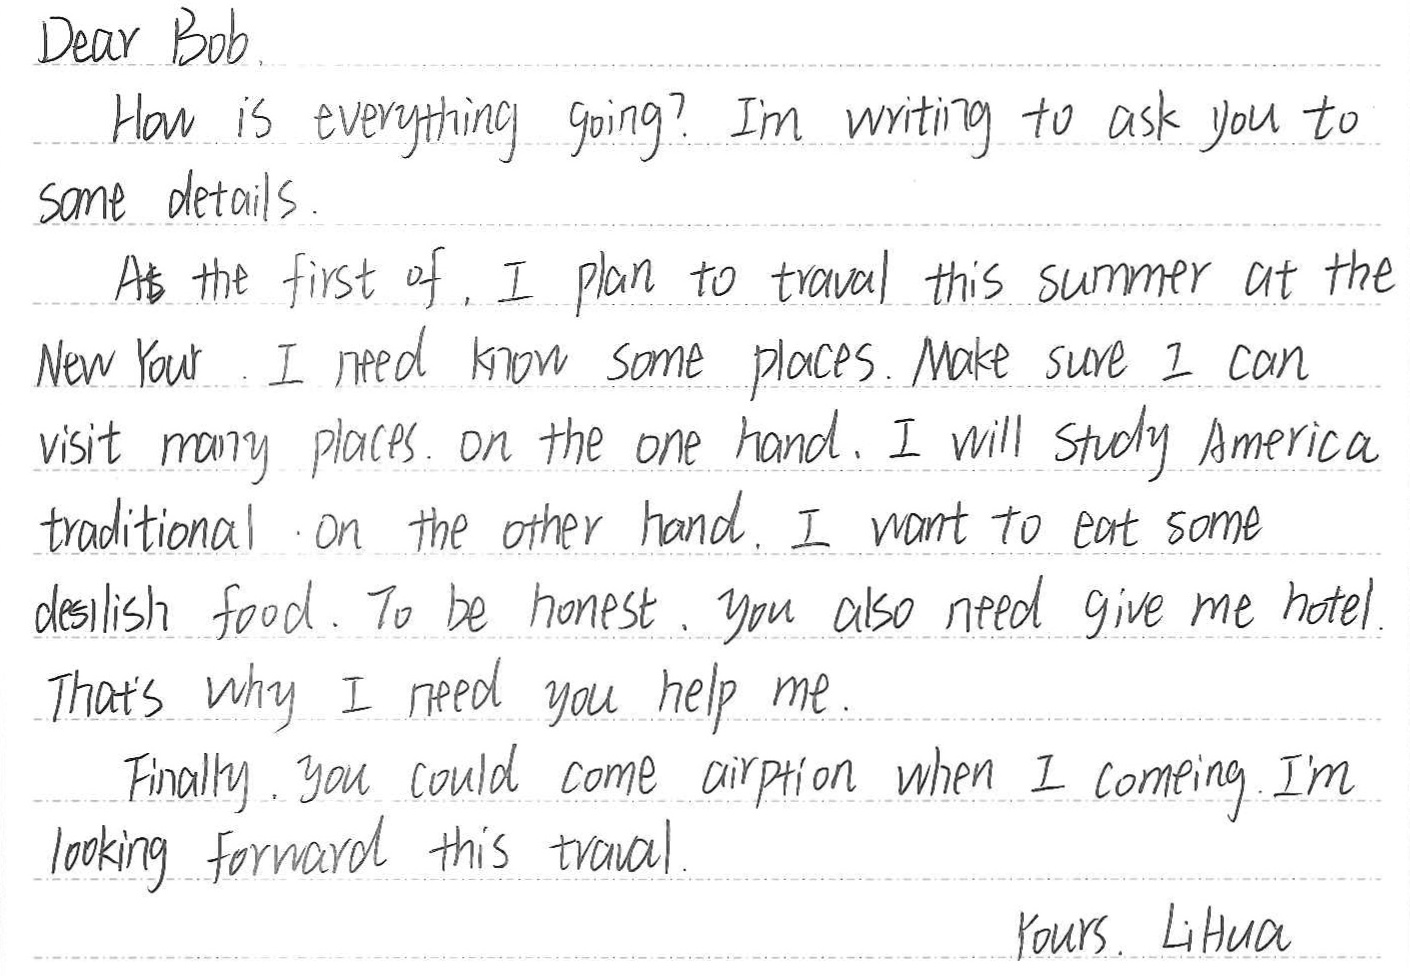 Dear Bob.
How is everything going? I'm writing to ask you to
some details.
At the first of, I plan to traval this summer at the
New Your. I need know some places. Make sure I can
visit many places. on the one hand. I will study America
traditional. on the other hand. I want to eat some
desilish food. To be honest. you also need give me hotel.
That's why I need you help me.
Finally. you could come airption when I comeing. I'm
looking forward this traval.
Yours. LiHua